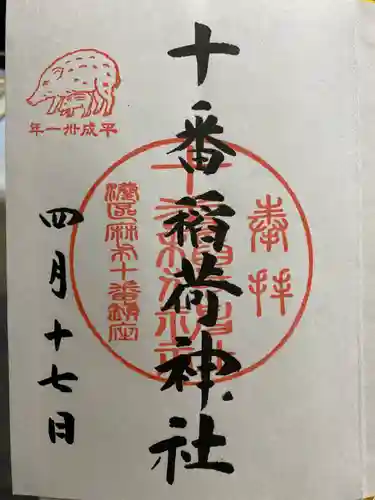 奉拝
十番稲荷神社
港区麻布十番鎮座
平成卅一年
四月十七日